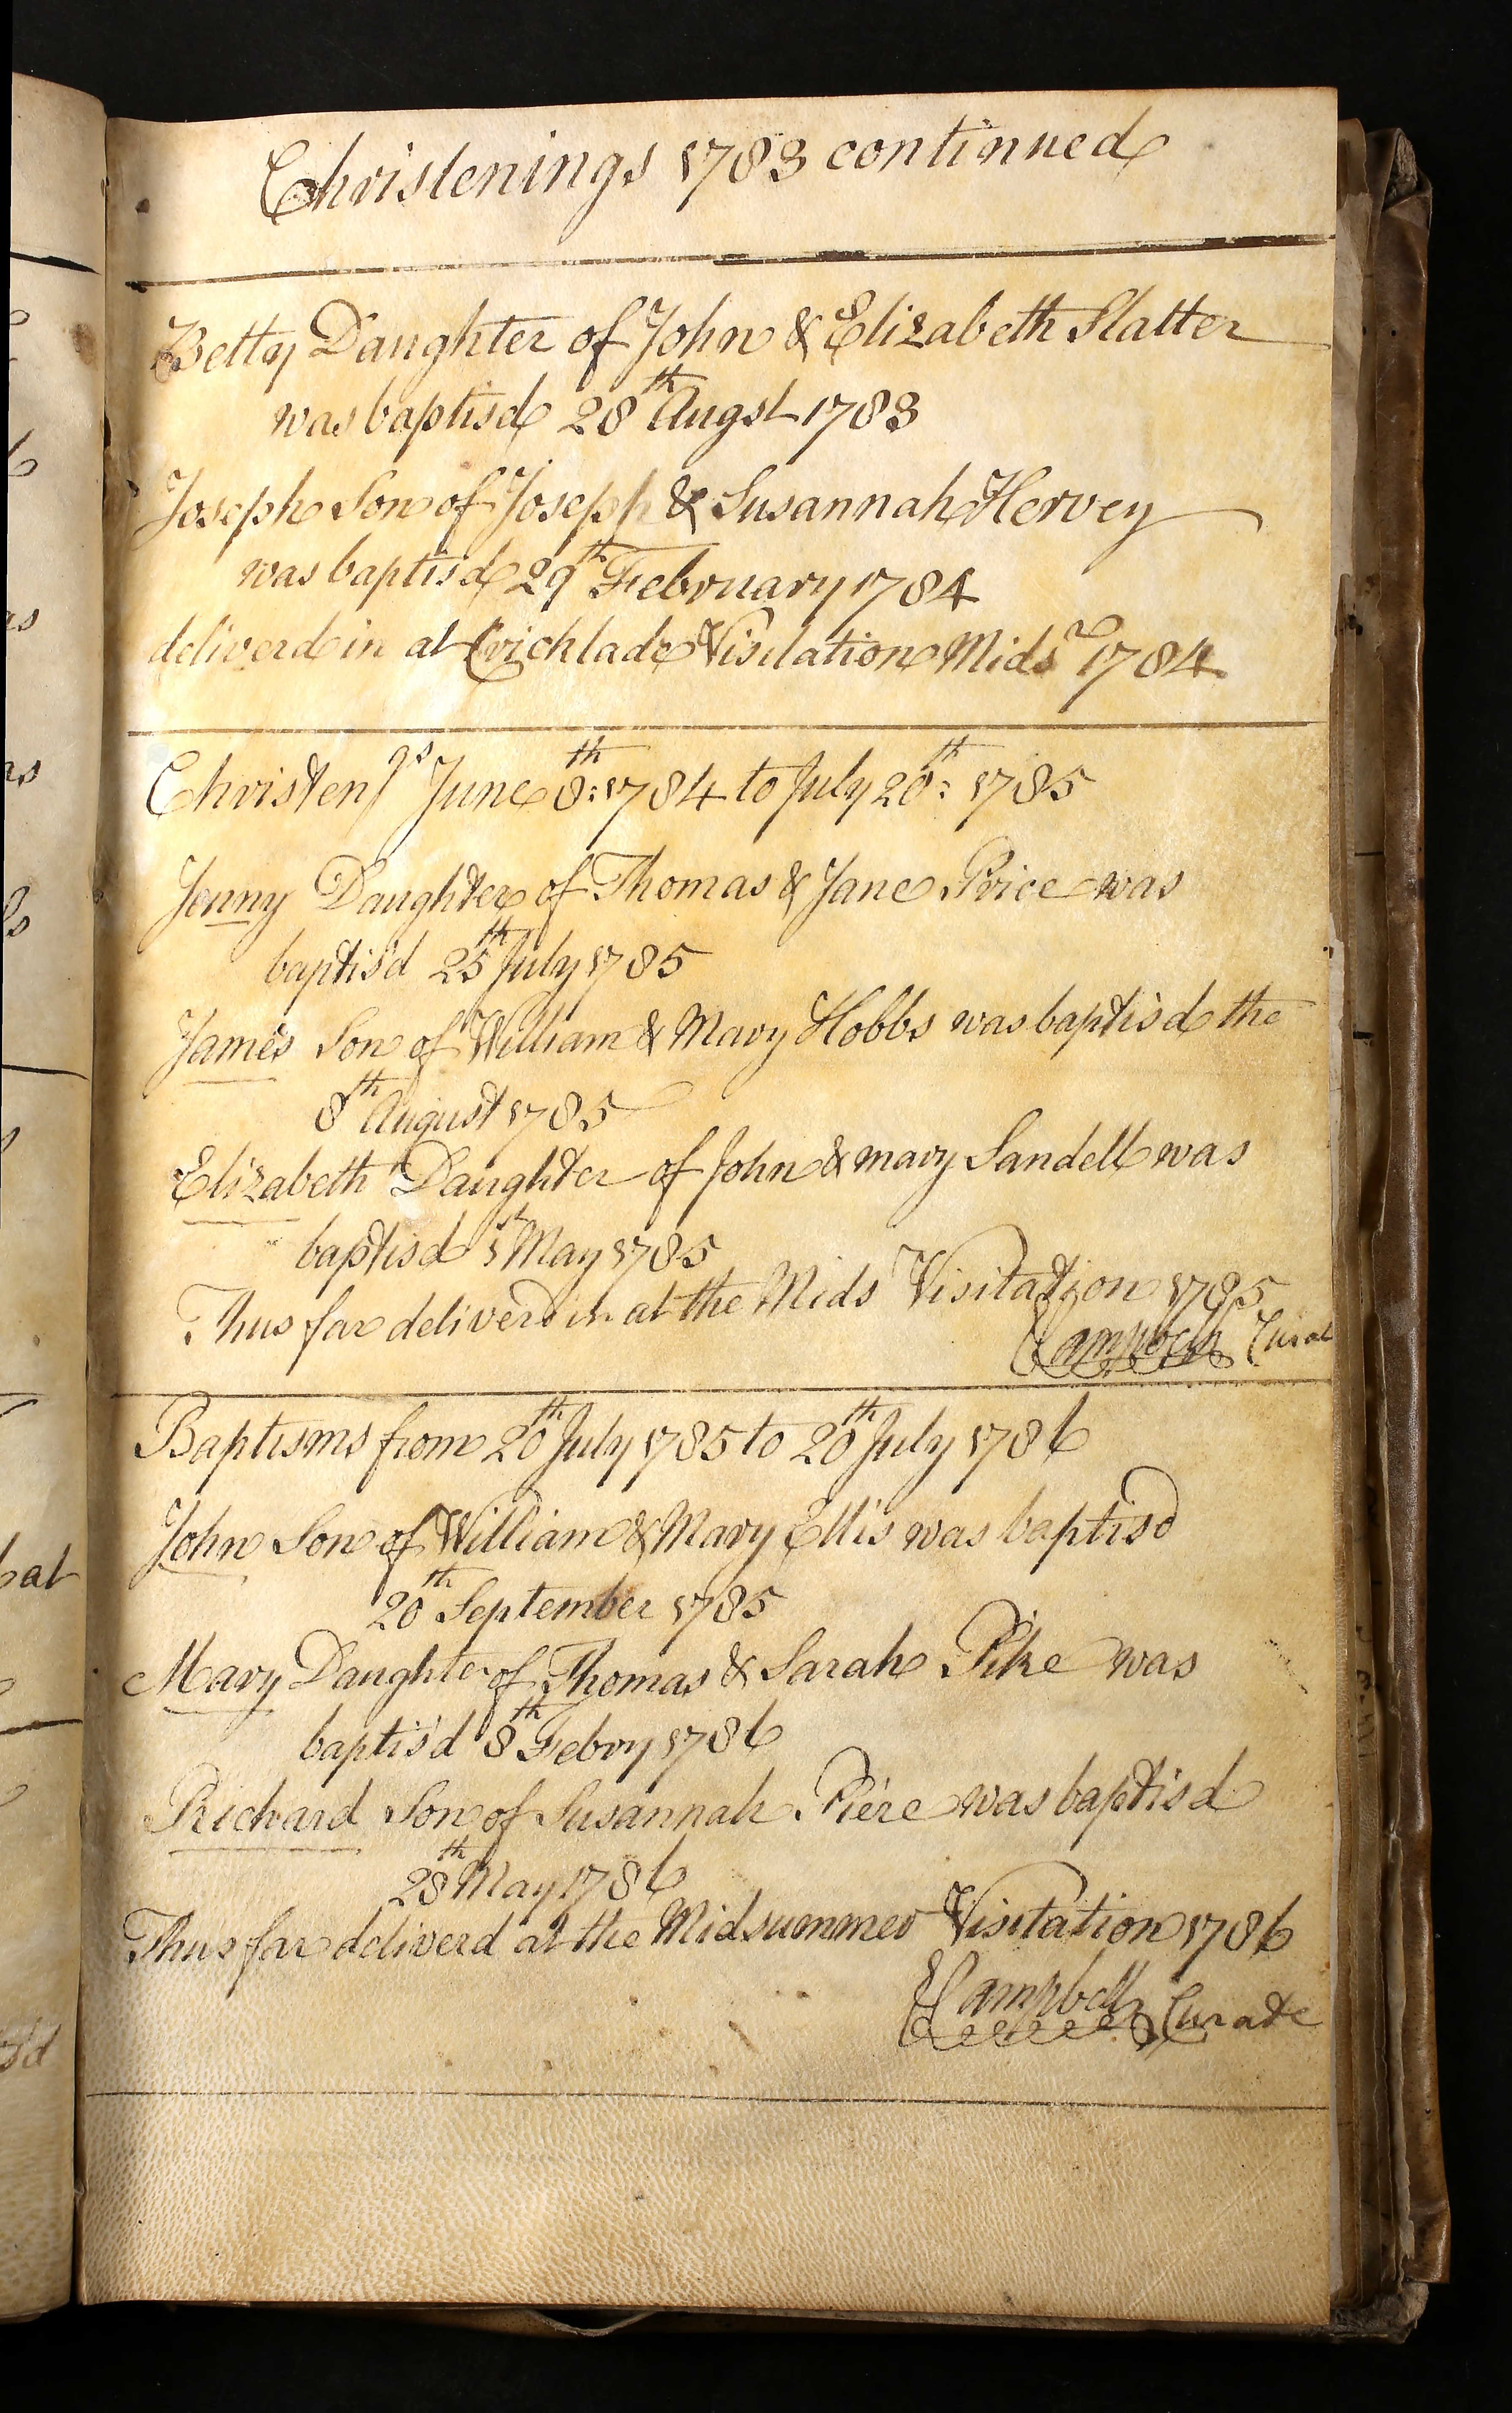 Christenings 1783 continued
Betty Daughter of John & Elizabeth Slatter
was baptisd 28th Augst 1783
Joseph Son of Joseph & Susannah Hervey
was baptisd 29th February 1784
deliverd in at Cricklade Visitation Midsr 1784
Christengs June 8th: 1784 to July 20th: 1785
Jenny Daughter of Thomas & Jane Price was
baptis'd 25th July 1785
James Son of William & Mary Hobbs was baptis'd the
8th August 1785
Elizabeth Daughter of John & mary Sandell was
baptisd 1st May 1785
Thus far deliverd in at the Mids Visitation 1785
Campbell Curat
Baptisms from 20th July 1785 to 20th July 1786
John Son of William & Mary Ellis was baptisd
20th September 1785
Mary Daughter of Thomas & Sarah Pike was
baptis'd 8th Febry 1786
Richard Son of Susannah Piere was baptis'd
28th May 1786
Thus far deliverd at the Midsummer Visitation 1786
Campbell Curate